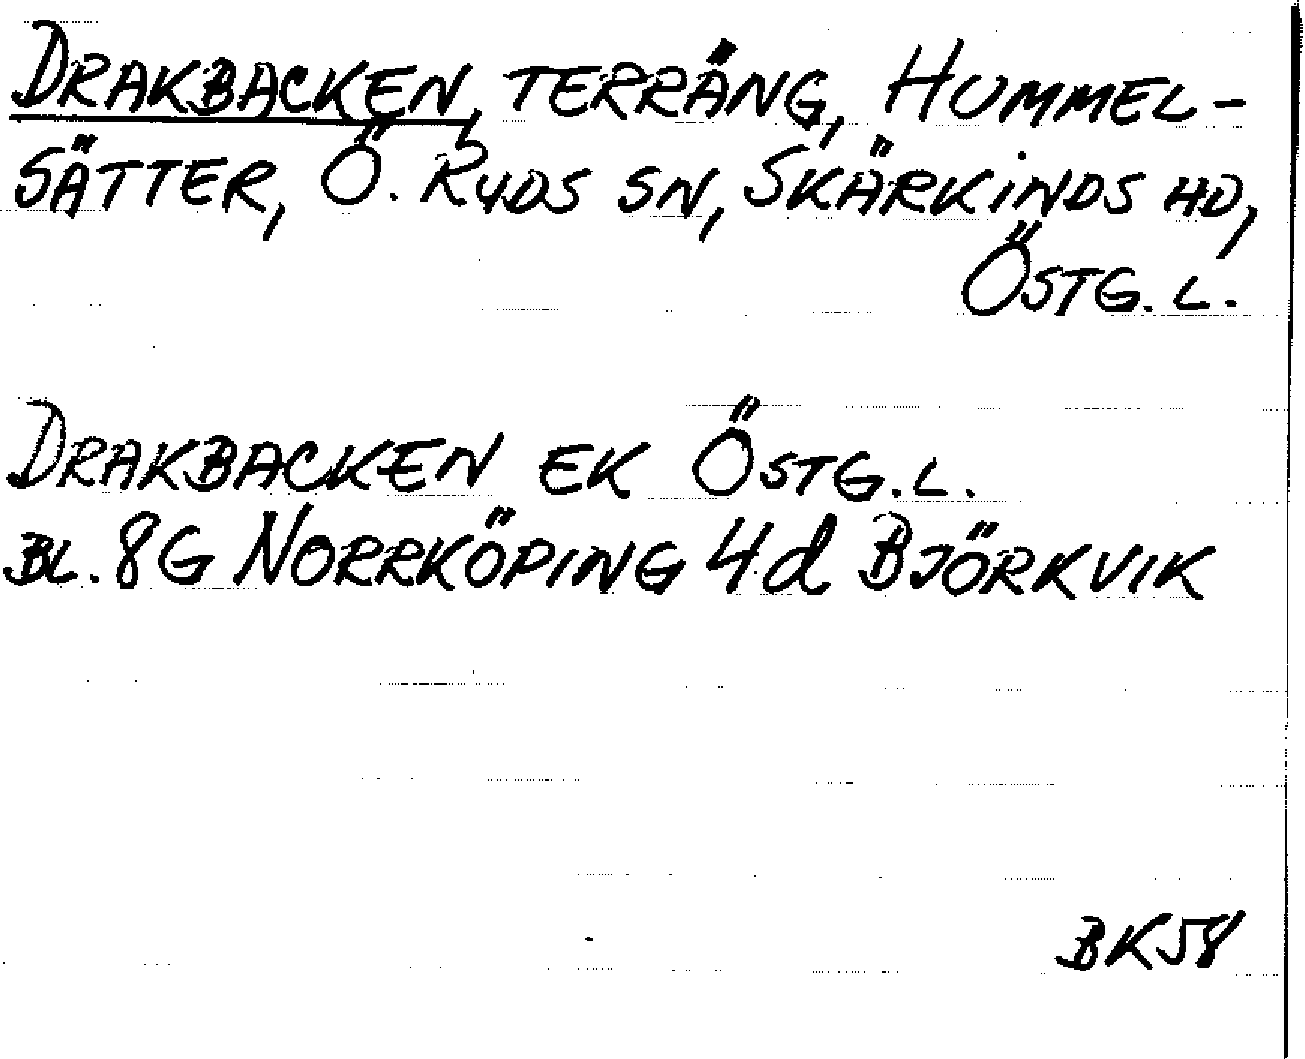 DRAKBACKEN, TERRÄNG, HUMMEL-
SÄTTER, Ö. RYDS SN, SKÄRKINDS HD,
ÖSTG. L.
DRAKBACKEN EK ÖSTG. L.
BL. 8G NORRKÖPING 4d BJÖRKVIK
BK58